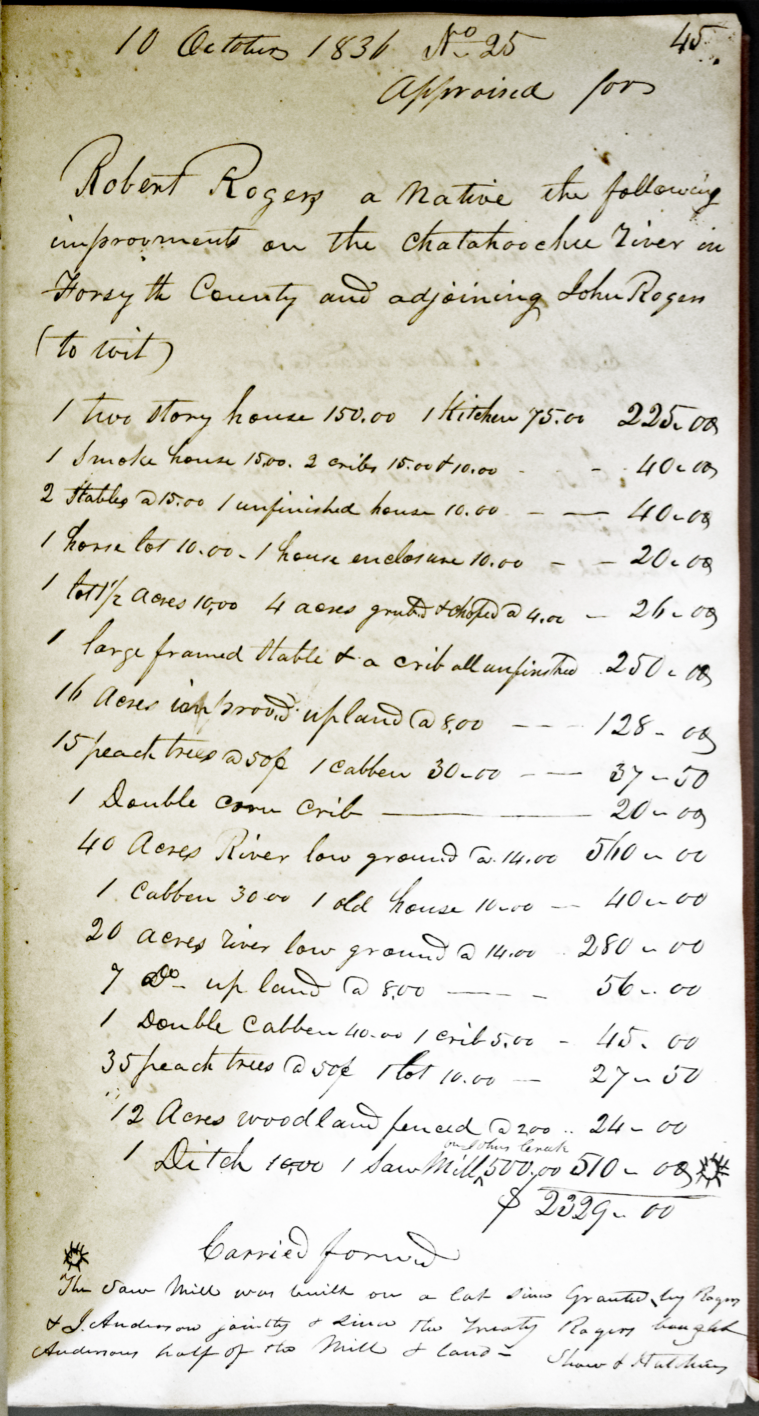 10 October 1836 No 25 45
Appraised for
Robert Rogers a Native the following
improvments on the Chatahoochee River in
Forsyth County and adjoining John Rogers
(to wit)
1 two story house 150.00 1 Kitchen 75.00 225.00
1 Smoke house 15.00. 2 cribs 15.00 & 10.00 - - 40.00
2 Stables @ 15.00 1 unfinished house 10.00 - - 40.00
1 horse lot 10.00 - 1 house enclosure 10.00 - - 20.00
1 lot 1 1/2 Acres 10,00 4 acres grub'd & choped @ 4.00 - 26.00
1 large framed Stable & a crib all unfinished 250.00
16 Acres improv'd upland @ 8.00 - - - 128.00
15 peach trees @ 50¢ 1 cabben 30.00 - - 37.50
1 Double corn crib - 20.00
40 Acres River low ground @ 14.00 560.00
1 Cabben 30.00 1 old house 10.00 - 40.00
20 acres River low ground @ 14.00 280.00
7 Do up land @ 8.00 - - 56.00
1 Double Cabben 40.00 1 crib 5.00 - 45.00
35 peach trees @ 50¢ 1 lot 10.00 - 27.50
12 Acres woodland fenced @ 2.00 .. 24.00
on Johns Creek
1 Ditch 10.00 1 Saw Mill 500.00 510.00
$ 2329.00
Carried forward
The Saw Mill was built on a lot since Granted, by Rogers
& J. Anderson jointly & since the Treaty Rogers bought
Andersons half of the Mill & land - Shaw & Hutchins